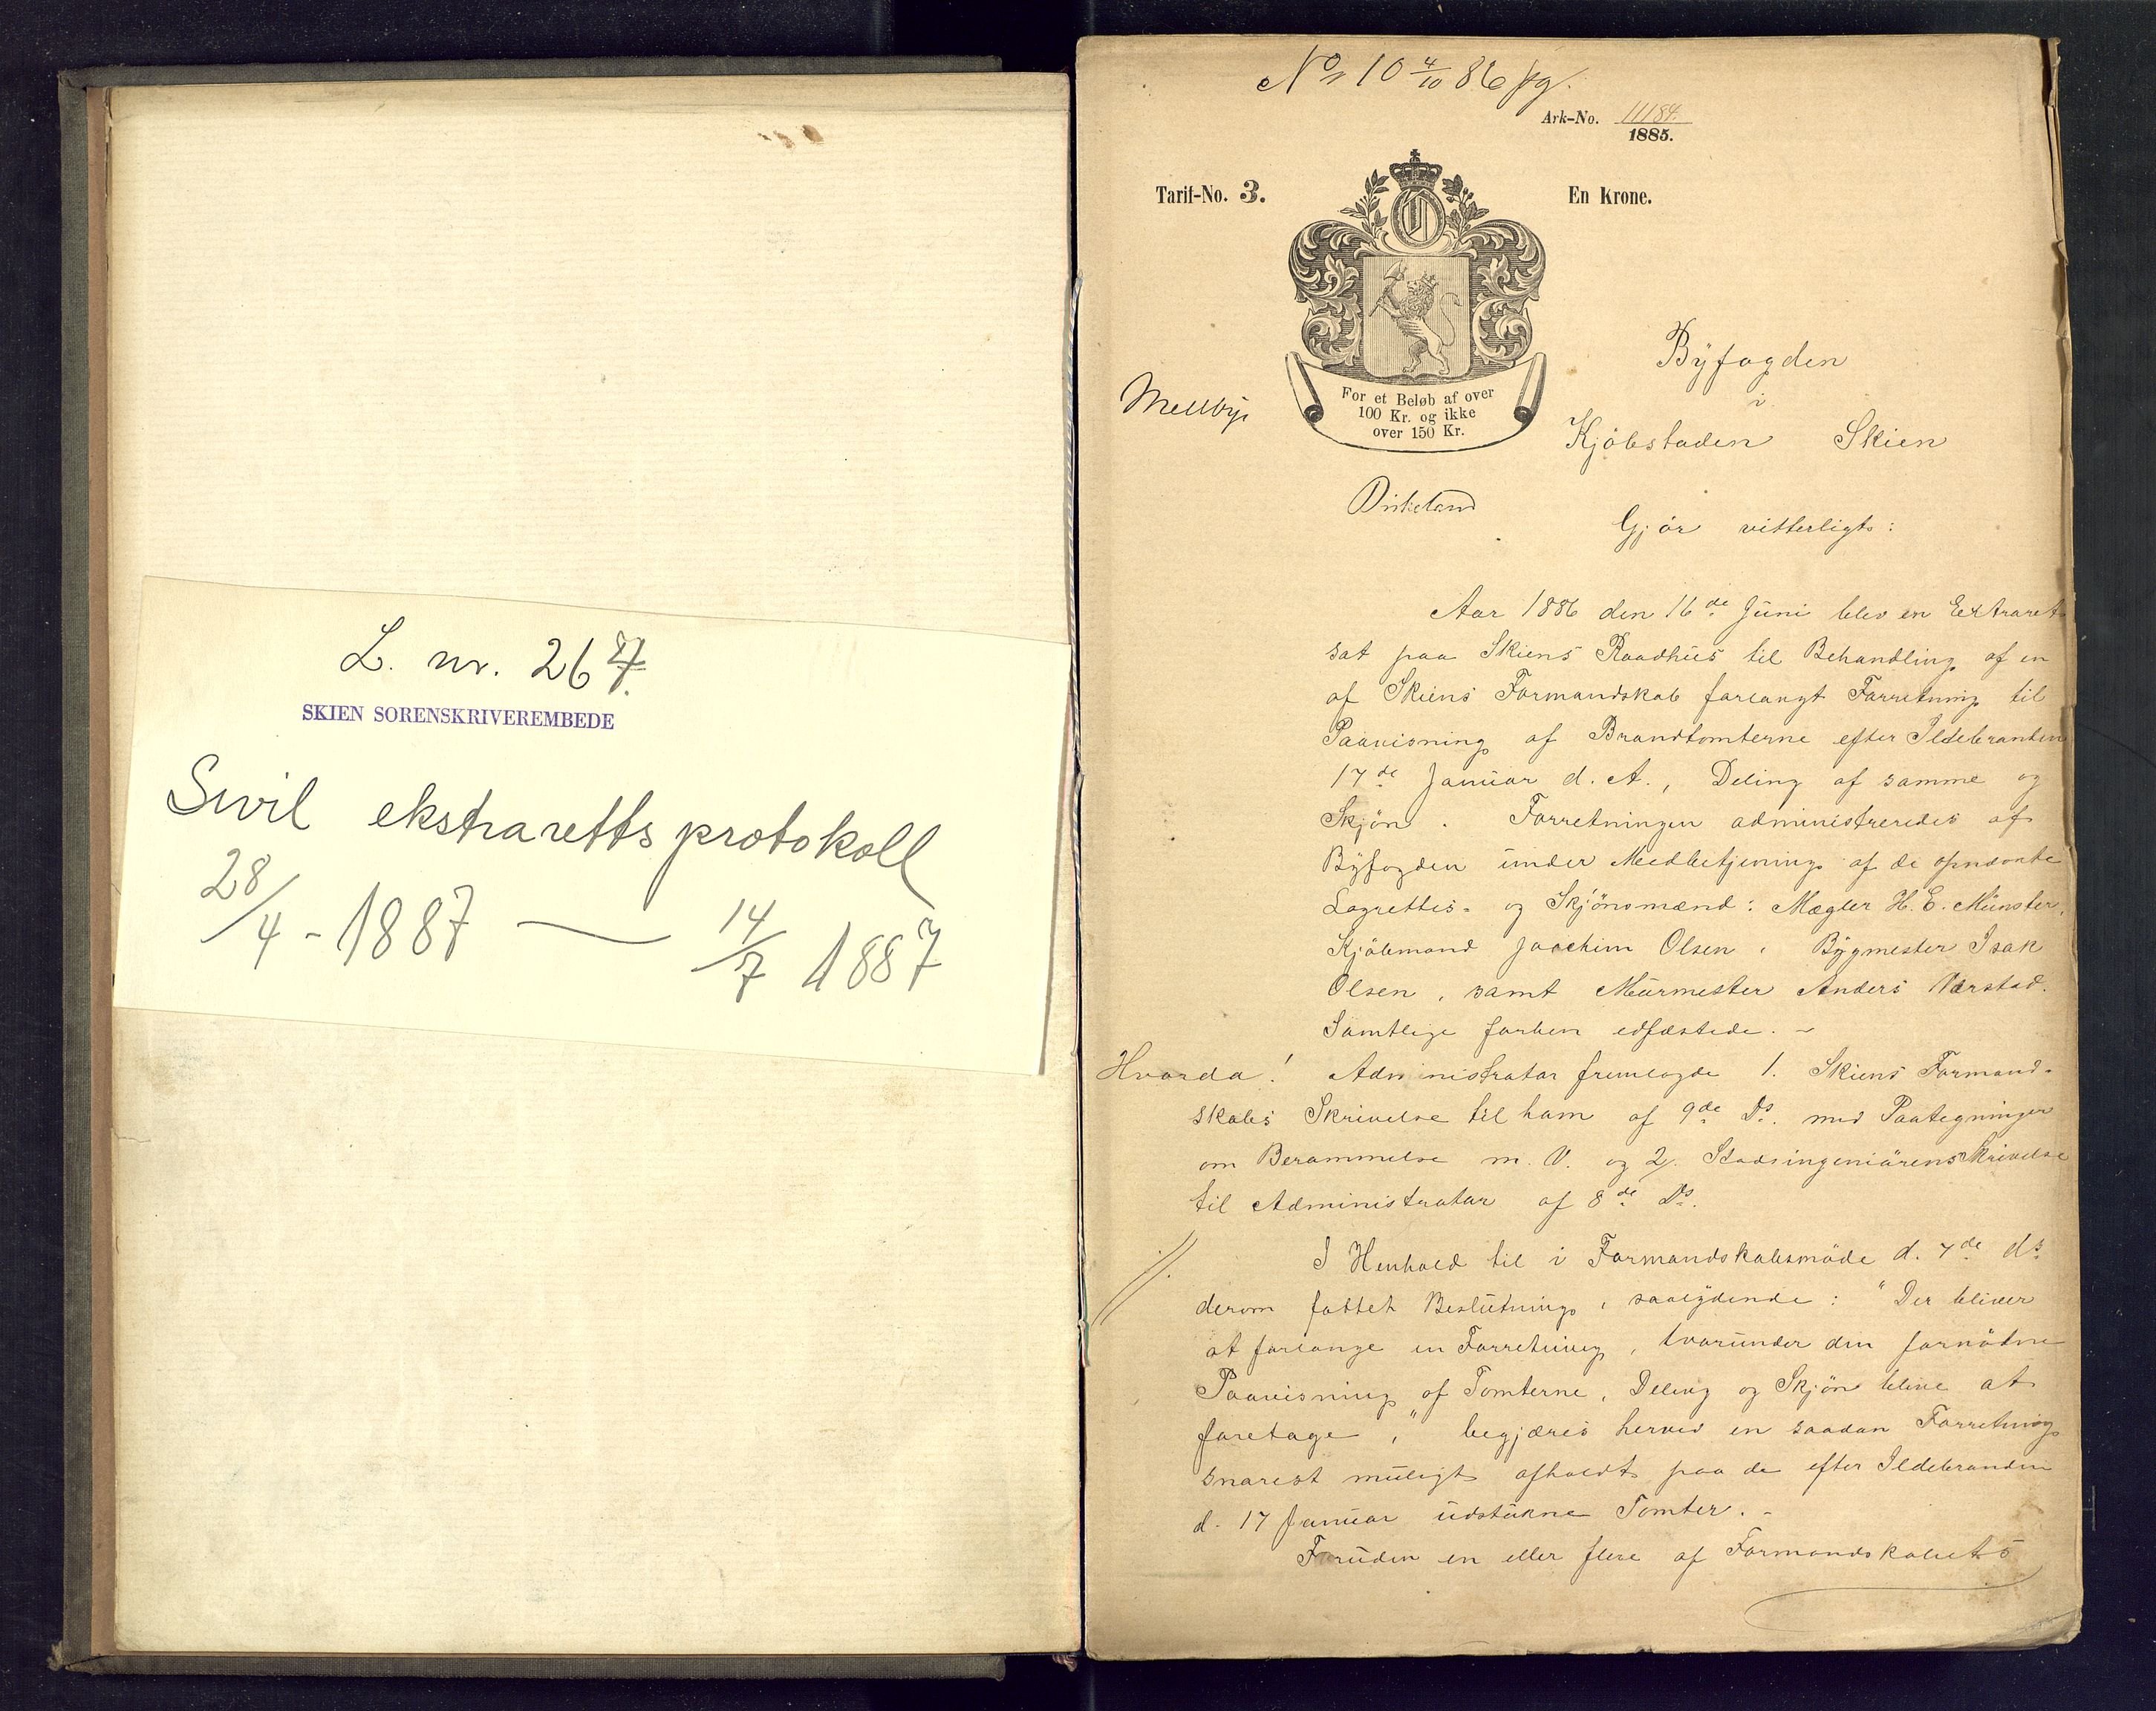 L. nr. 267.
SKIEN SORENSKRIVEREMBEDE
Sivil ekstrarettsprotokoll
28/4 - 1887 — 14/7 1887
No 10 4/10 86
Ark-No. 11184.
1885.
Tarif-No. 3.
En Krone.
For et Beløb af over
100 Kr. og ikke
over 150 Kr.
Mellbye
Byfogden
i
Kjöbstaden Skien
Gjör vitterligt:
Aar 1886 den 16de Juni blev en Extraret
sat paa Skiens Raadhus til Behandling af en
af Skiens Formandskab forlangt Forretning til
Paavisning af Brandtomterne efter Ildebranden
17de Januar d. A., Deling af samme og
Skjön. Forretningen administreredes af
Byfogden under Medbetjening af de opnævnte
Lagrettes- og Skjönsmænd: Mægler H. E. Münster,
Kjöbmand Joachim Olsen, Bygmester Isak
Olsen, samt Murmester Anders
Samtlige forhen edfæstede. -
Hvorda! Administrator fremlagde 1. Skiens Formand-
skabs Skrivelse til ham af 9de Ds. med Paategninger
om Berammelse m. V. og 2. Stadsingeniörens Skrivelse
til Administrator af 8de Ds.
1/.
I Henhold til i Formandskabsmöde d. 7de ds.
derom fattet Beslutning, saalydende: "Der bliver
at forlange en Forretning, hvorunder den fornödne
Paavisning af Tomterne, Deling og Skjön blive at
foretage," begjæres herved en saadan Forretning
snarest muligt afholdt paa de efter Ildebranden
d. 17 Januar udstukne Tomter. -
Foruden en eller flere af Formandskabets